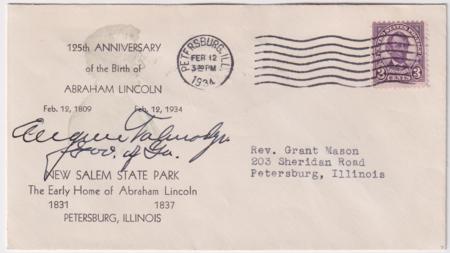 125th ANNIVERSARY
of the Birth of
ABRAHAM LINCOLN
Feb. 12, 1809 Feb. 12, 1934
Eugene Talmadge
Gov. of Ga.
NEW SALEM STATE PARK
The Early Home of Abraham Lincoln
1831 1837
PETERSBURG, ILLINOIS
PETERSBURG, ILL.
FEB 12
PM
1934
3 CENTS 3
Rev. Grant Mason
203 Sheridan Road
Petersburg, Illinois